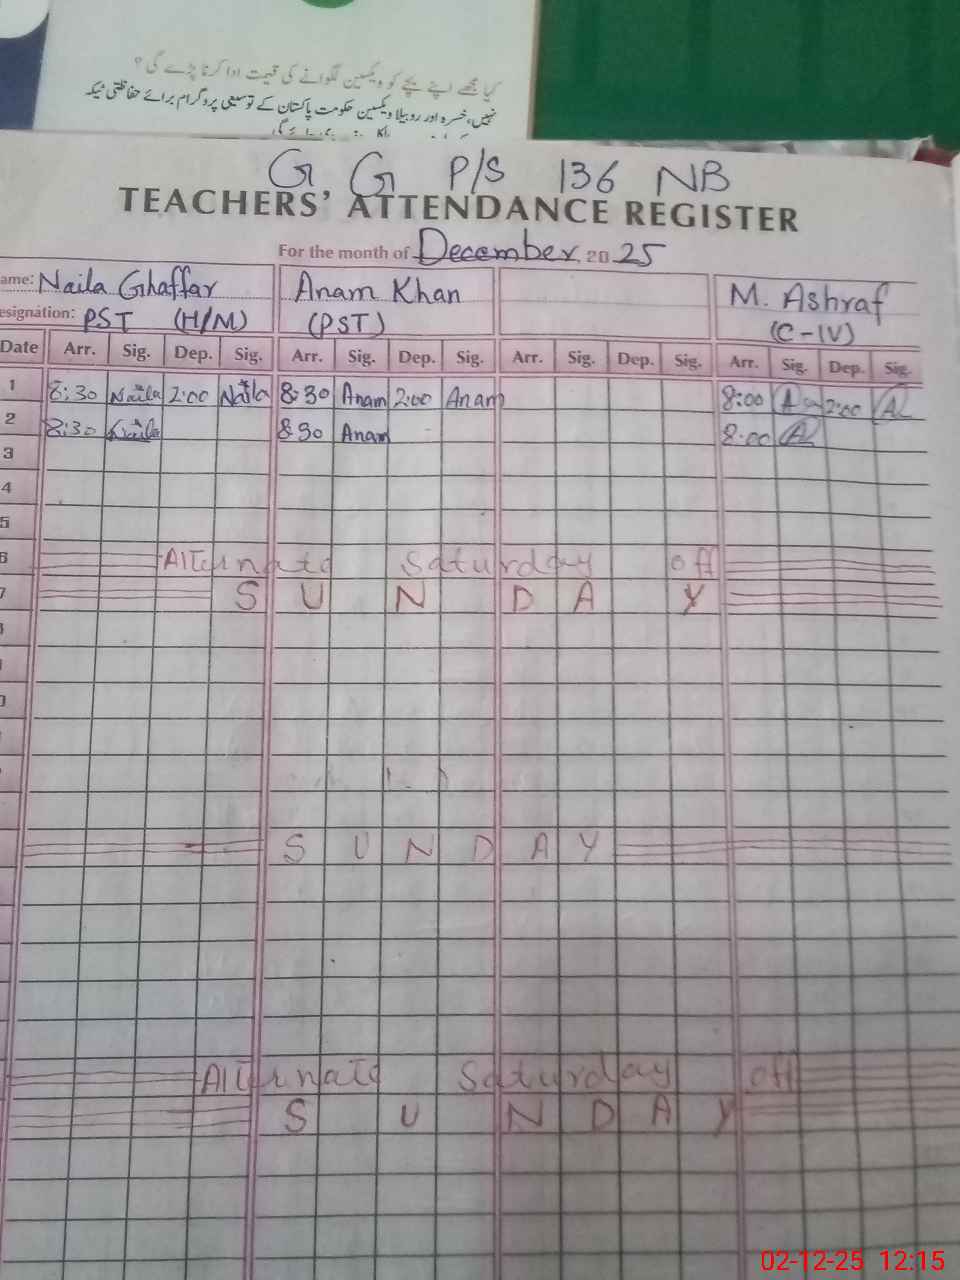 کیا مجھے اپنے بچے کو ویکسین لگوانے کی قیمت ادا کرنا پڑے گی؟
نہیں، خسرہ اور روبیلا ویکسین حکومت پاکستان کے توسیعی پروگرام برائے حفاظتی ٹیکہ
G G P/S 136 NB
TEACHERS' ATTENDANCE REGISTER
For the month of December 2025
ame: Naila Ghaffar Anam Khan M. Ashraf
esignation: PST (H/M) (PST) (C-IV)
Date Arr. Sig. Dep. Sig. Arr. Sig. Dep. Sig. Arr. Sig. Dep. Sig. Arr. Sig. Dep. Sig.
1 8:30 Naila 2:00 Naila 8:30 Anam 2:00 Anam 8:00 2:00
2 8:30 Naila 8 30 Anam 8:00
3
4
5
6 Alternate Saturday off
7 S U N D A Y
S U N D A Y
Alternate Saturday off
S U N D A Y
02-12-25 12:15